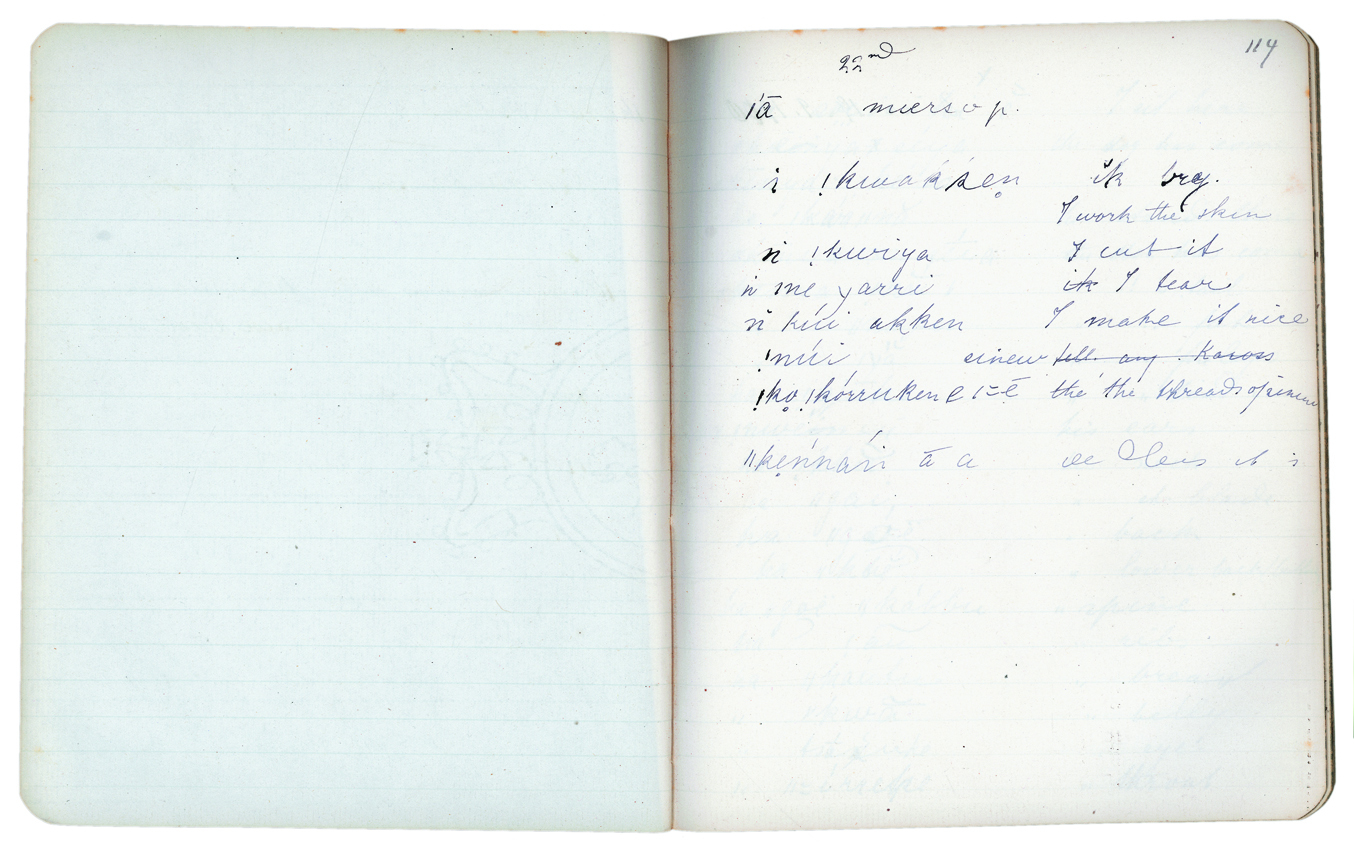 114
22nd
|ā mierso p.
ṅ !kwakken ik brey.
I work the skin
ṅ !kwiya I cut it
ṅ me yarri ik I tear
ṅ kúi akken I make it nice
!núi sinew tell any Kaross
!ko !kórruken e |=ē the the threads of sinew
"kennán ā a it is